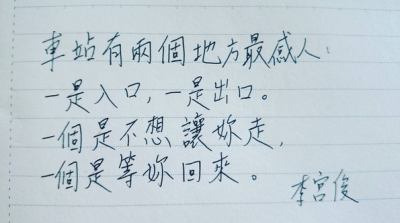 車站有兩個地方最感人：
一是入口，一是出口。
一個是不想讓妳走，
一個是等妳回來。
李宮俊